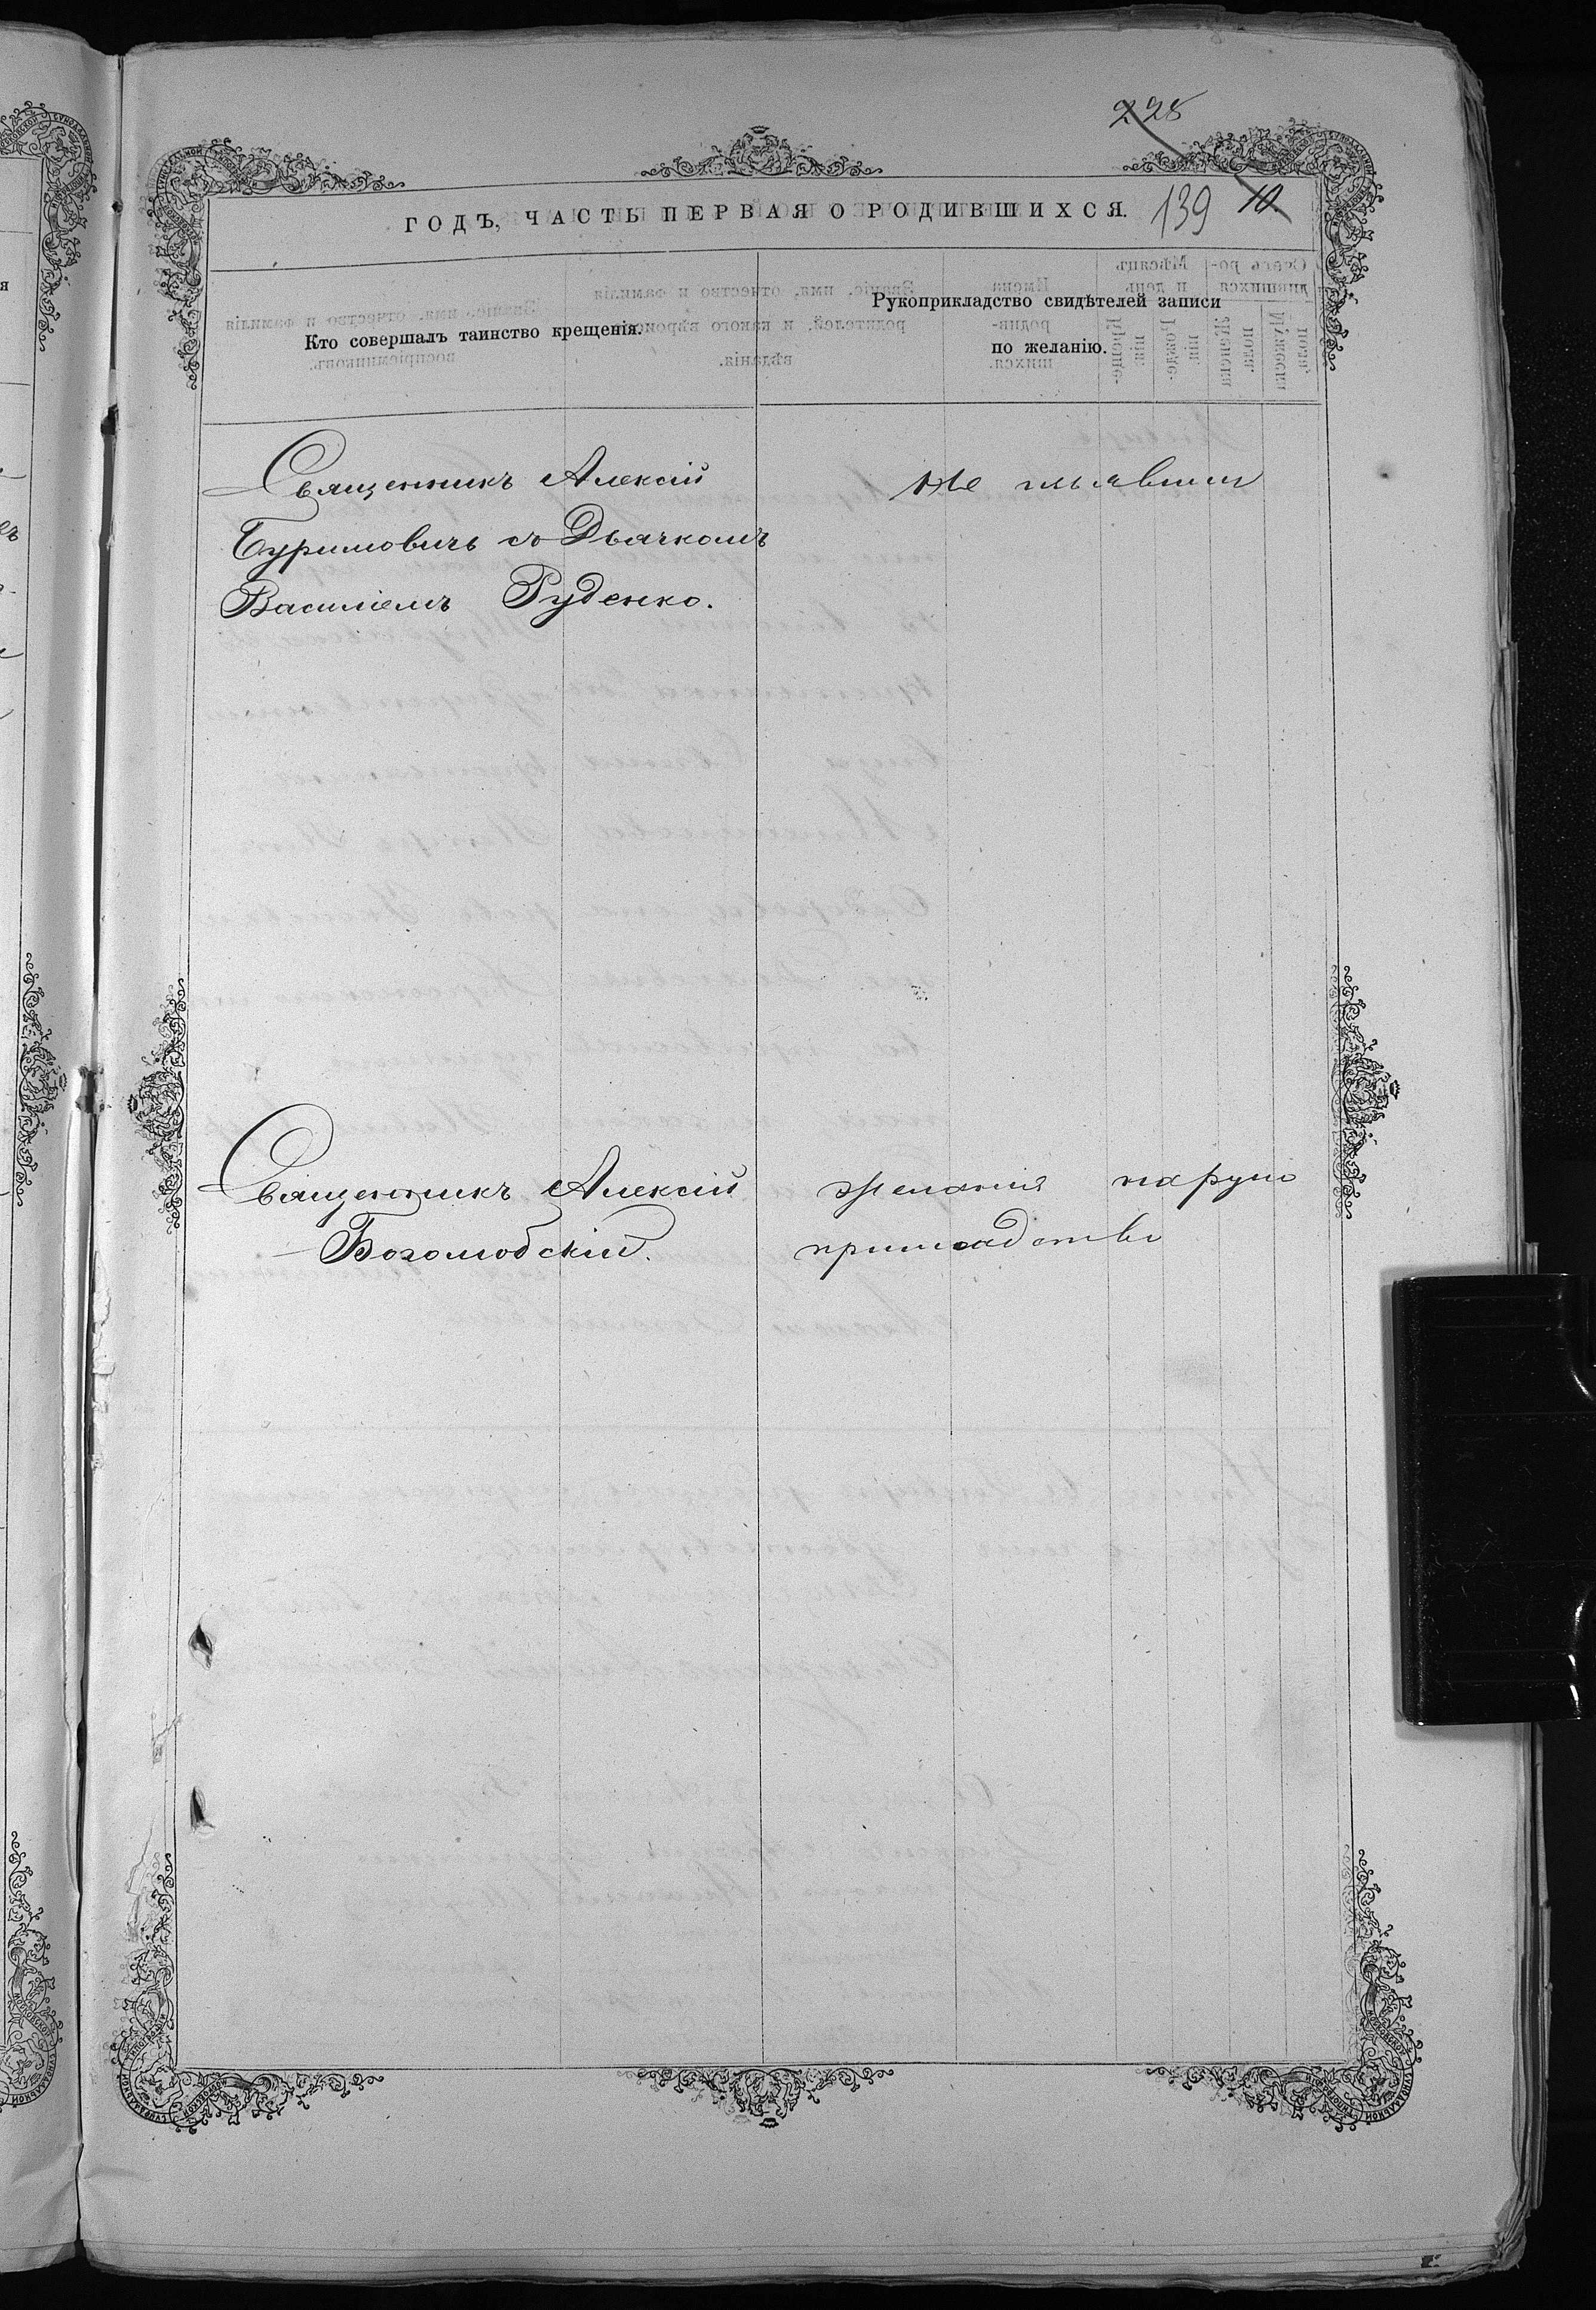 228
ГОДЪ, ЧАСТЬ ПЕРВАЯ О РОДИВШИХСЯ.
139 10
Кто совершалъ таинство крещенія.
Рукоприкладство свидѣтелей записи
по желанію.
Священникъ Алексій
Буримовичъ съ Дьячкомъ
Василіемъ Руденко.
Не изъявили
Священникъ Алексій
Боголюбскій.
желанія на руко
прикладство